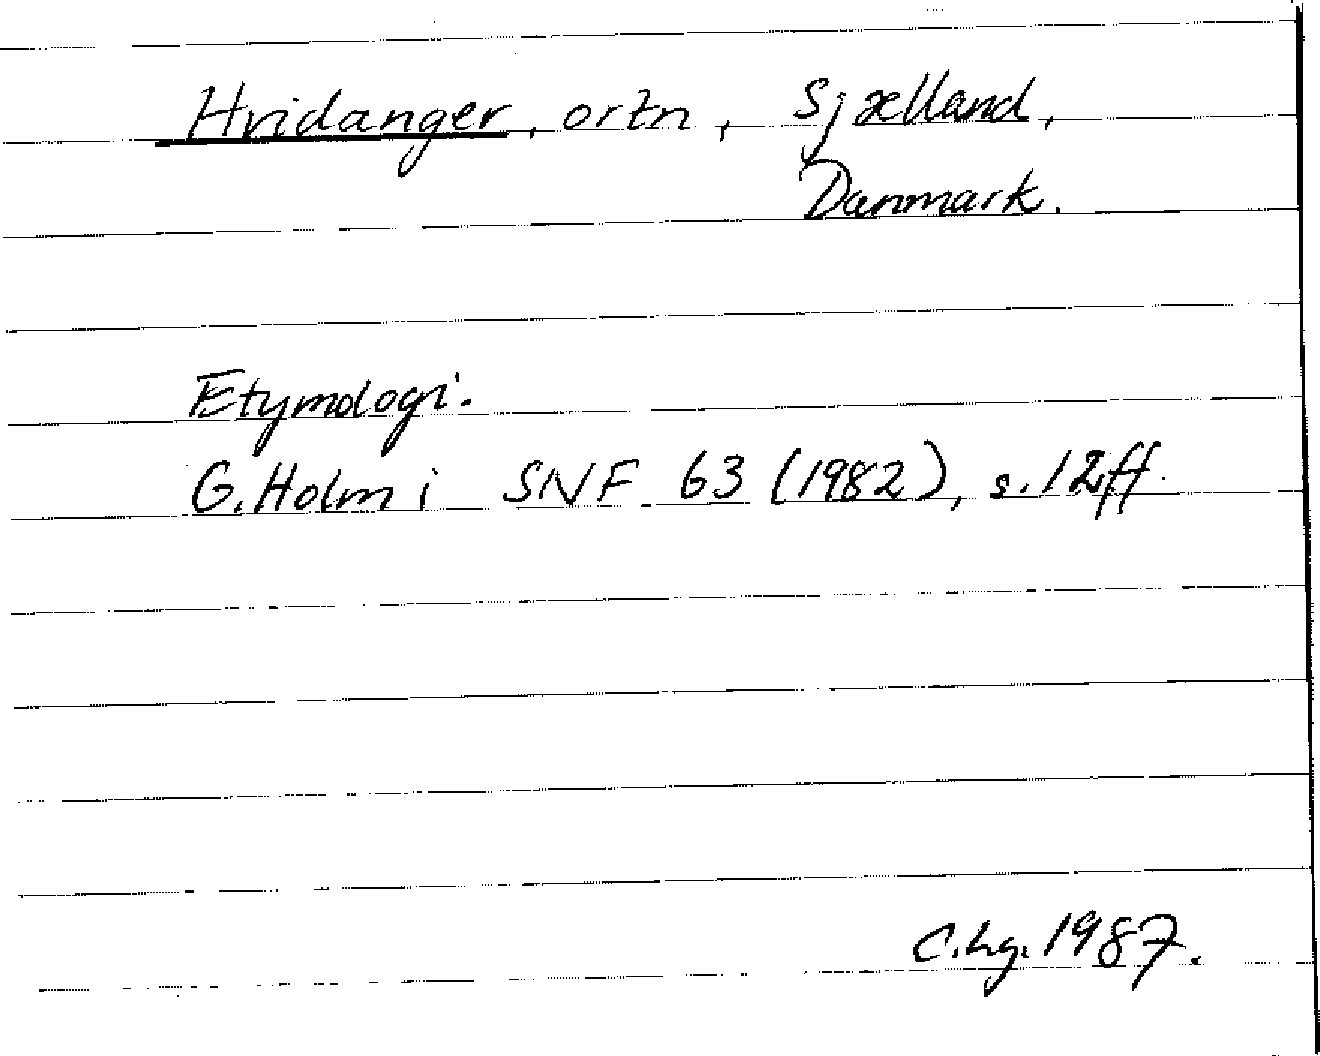 Hvidanger, ortn, Sjælland,
Danmark.
Etymologi.
G. Holm i SNF 63 (1982), s. 12ff.
C.Lg. 1987.